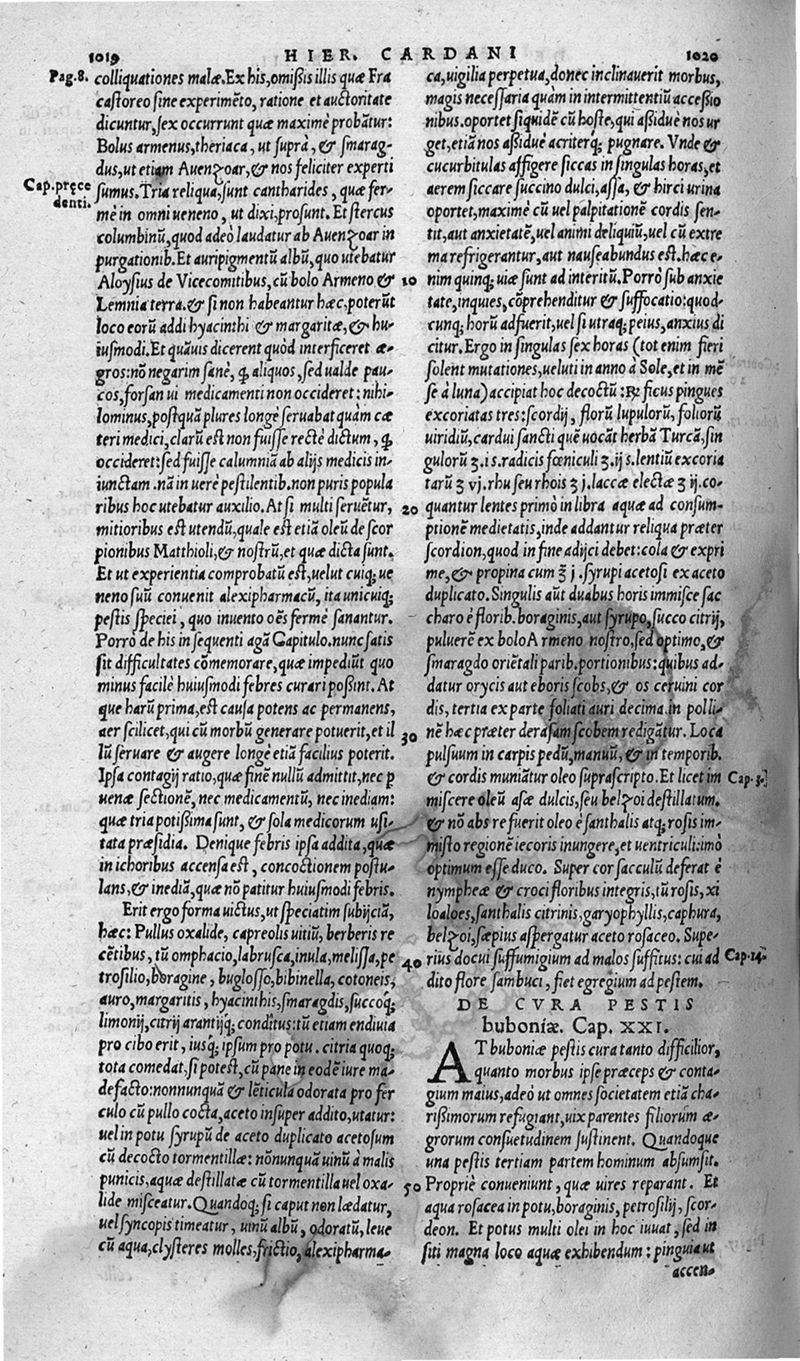 1019 HIER. CARDANI 1020
Pag.8.
colliquationes malæ.Ex his,omißis illis quæ Fra
castoreo sine experimēto, ratione et auctoritate
dicuntur,sex occurrunt quæ maximè probātur:
Bolus armenus,theriaca, ut suprà, & smarag-
dus,ut etiam Auenzoar,& nos feliciter experti
Cap.pręce
denti.
sumus.Tria reliqua,sunt cantharides, quæ fer-
mè in omni ueneno, ut dixi,prosunt. Et stercus
columbinū,quod adeò laudatur ab Auenzoar in
purgationib.Et auripigmentū albū,quo utebatur
Aloysius de Vicecomitibus,cū bolo Armeno &
Lemnia terra.& si non habeantur hæc,poterūt
loco eorū addi hyacinthi & margaritæ,& hu-
iusmodi.Et quāuis dicerent quòd interficeret æ-
gros:nō negarim sanè, q̄ aliquos,sed ualde pau-
cos,forsan ui medicamenti non occideret: nihi-
lominus,postquā plures longè seruabat quàm cæ
teri medici,clarū est non fuisse rectè dictum, q̄
occideret:sed fuisse calumniā ab alijs medicis in-
iunctam .nā in uerè pestilentib.non puris popula
ribus hoc utebatur auxilio. At si multi seruētur,
mitioribus est utendū,quale est etiā oleū de scor
pionibus Matthioli,& nostrū,et quæ dicta sunt.
Et ut experientia comprobatū est,uelut cuiq; ue
neno suū conuenit alexipharmacū, ita unicuiq;
pestis speciei, quo inuento oēs fermè sanantur.
Porrò de his in sequenti agā Capitulo.nunc satis
sit difficultates cōmemorare,quæ impediūt quo
minus facilè huiusmodi febres curari poßint. At
que harū prima,est causa potens ac permanens,
aer scilicet,qui cū morbū generare potuerit,et il
lū seruare & augere longè etiā facilius poterit.
Ipsa contagij ratio,quæ finē nullū admittit,nec p
uenæ sectionē, nec medicamentū, nec inediam:
quæ tria potißima sunt, & sola medicorum usi-
tata præsidia. Denique febris ipsa addita,quæ
in ichoribus accensa est, concoctionem postu-
lans,& inediā,quæ nō patitur huiusmodi febris.
Erit ergo forma uictus,ut speciatim subijciā,
hæc: Pullus oxalide, capreolis uitiū, berberis re
cētibus, tū omphacio,labrusca,inula,melissa,pe
trosilio,boragine, buglosso,bibinella, cotoneis,
auro,margaritis, hyacinthis,smaragdis,succoq́;
limonij,citrij arantijq́; conditus:tū etiam endiuia
pro cibo erit, iusq́; ipsum pro potu. citria quoq;
tota comedat,si potest,cū pane in eodē iure ma-
defacto:nonnunquā & lēticula odorata pro fer
culo cū pullo cocta,aceto insuper addito,utatur:
uel in potu syrupū de aceto duplicato acetosum
cū decocto tormentillæ: nōnunquā uinū à malis
punicis,aquæ destillatæ cū tormentilla uel oxa-
lide misceatur.Quandoq; si caput non lædatur,
uel syncopis timeatur, uinū albū, odoratū, leue
cū aqua,clysteres molles,frictio, alexipharma-
ca,uigilia perpetua,donec inclinauerit morbus,
magis necessaria quàm in intermittentiū accessio
nibus.oportet siquidē cū hoste,qui aßiduè nos ur
get,etiā nos aßiduè acriterq́; pugnare. Vnde &
cucurbitulas affigere siccas in singulas horas,et
aerem siccare succino dulci,assa,& hirci urina
oportet,maximè cū uel palpitationē cordis sen-
tit,aut anxietatē,uel animi deliquiū,uel cū extre
ma refrigerantur, aut nauseabundus est.hæc e-
10 nim quinq; uiæ sunt ad interitū. Porrò sub anxie
tate,inquies, cōprehenditur & suffocatio:quod-
cunq; horū adfuerit,uel si utraq; peius,anxius di
citur. Ergo in singulas sex horas (tot enim fieri
solent mutationes,ueluti in anno à Sole,et in mē
se à luna) accipiat hoc decoctū :℞ ficus pingues
excoriatas tres:scordij, florū lupulorū, foliorū
uiridiū, cardui sancti quē uocāt herbā Turcā,sin
gulorū ʒ.i s.radicis fœniculi ʒ.ij s.lentiū excoria
tarū ʒ vj.rhu seu rhois ʒ j.laccæ electæ ʒ ij.co-
20 quantur lentes primò in libra aquæ ad consum-
ptionē medietatis,inde addantur reliqua præter
scordion,quod in fine adijci debet:cola & expri
me,& propina cum ℥ j .syrupi acetosi ex aceto
duplicato. Singulis aūt duabus horis immisce sac
charo è florib.boraginis,aut syrupo,succo citrij,
puluerē ex bolo Armeno nostro,sed optimo,&
smaragdo oriētali parib.portionibus:quibus ad-
datur orycis aut eboris scobs,& os ceruini cor
dis, tertia ex parte foliati auri decima.in polli-
30 nē hæc præter derasam scobem redigātur. Loca
pulsuum in carpis pedū,manuū, & in temporib.
& cordis muniātur oleo suprascripto.Et licet im
Cap.3.
miscere oleū asæ dulcis,seu belzoi destillatum.
& nō abs re fuerit oleo è santhalis atq; rosis im-
misto regionē iecoris inungere,et uentriculi:imò
optimum esse duco. Super cor sacculū deferat è
nympheæ & croci floribus integris,tū rosis, xi
loaloes,santhalis citrinis,garyophyllis,caphura,
belzoi,sæpius aspergatur aceto rosaceo. Supe-
40 rius docui suffumigium ad malos suffitus: cui ad
Cap.14.
dito flore sambuci, fiet egregium ad pestem.
DE CVRA PESTIS
buboniæ. Cap. XXI.
AT buboniæ pestis cura tanto difficilior,
quanto morbus ipse præceps & conta-
gium maius,adeò ut omnes societatem etiā cha-
rißimorum refugiant,uix parentes filiorum æ-
grorum consuetudinem sustinent. Quandoque
una pestis tertiam partem hominum absumsit.
50 Propriè conueniunt, quæ uires reparant. Et
aqua rosacea in potu,boraginis, petrosilij, scor-
deon. Et potus multi olei in hoc iuuat, sed in
siti magna loco aquæ exhibendum : pinguia ut
accen-